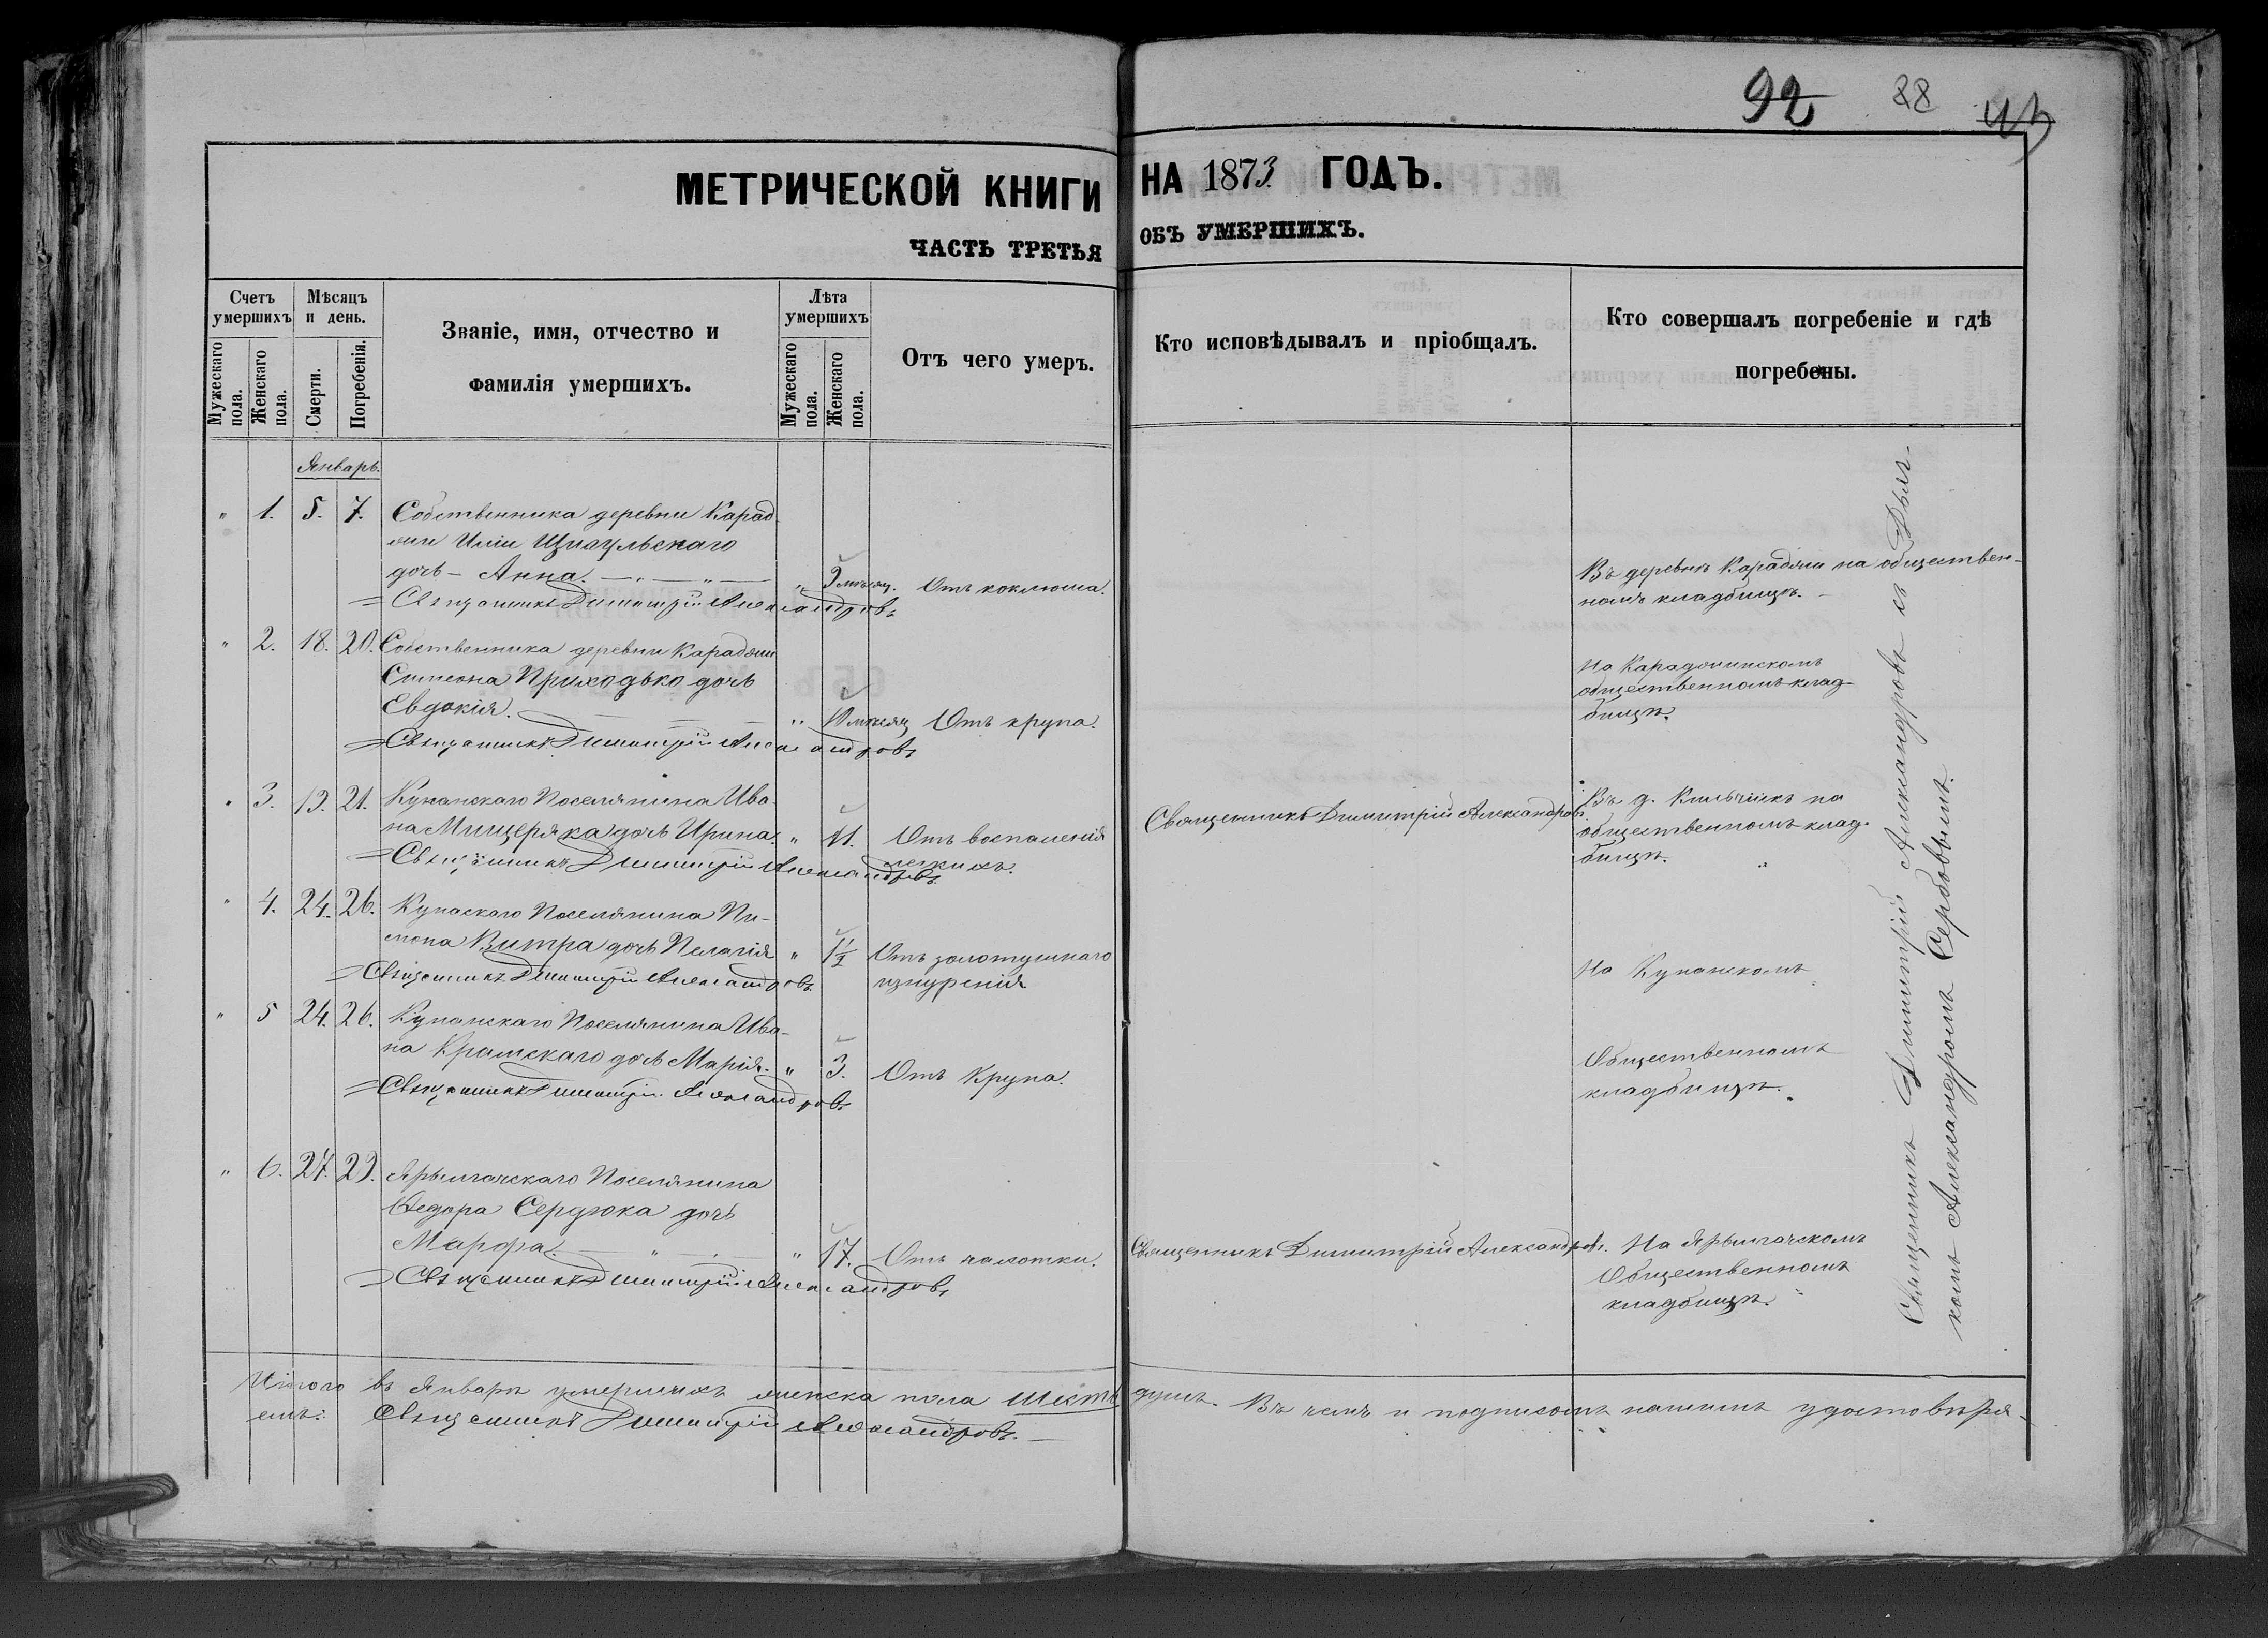 92 88
МЕТРИЧЕСКОЙ КНИГИ НА 1873 ГОДЪ.
ЧАСТЬ ТРЕТЬЯ ОБЪ УМЕРШИХЪ.
Счетъ умершихъ
Мужескаго пола.
Женскаго пола.
Мѣсяцъ и день.
Смерти.
Погребенія.
Званіе, имя, отчество и
фамилія умершихъ.
Лѣта умершихъ
Мужескаго пола.
Женскаго пола.
Отъ чего умеръ.
Кто исповѣдывалъ и пріобщалъ.
Кто совершалъ погребеніе и гдѣ
погребены.
Январь.
" 1. 5. 7. Собственника деревни Карад
Иліи
дочь - Анна. " мѣсяц. Отъ коклюша.
Священникъ Димитрій Александровъ
Въ деревнѣ Караджи на обществен-
номъ кладбищѣ.
" 2. 18. 20. Собственника деревни Караджи
Симеона Приходько дочь
Евдокія. " 10 мѣсяц Отъ крупа.
Священникъ Димитрій Александровъ
На Караджинскомъ
общественномъ клад-
бищѣ.
" 3. 19. 21. Кунанскаго Поселянина Ива-
на Мищеряка дочь Ирина. " 11. Отъ воспаленія
легкихъ.
Священникъ Димитрій Александровъ
Священникъ Димитрій Александровъ.
Въ д. на
общественномъ клад-
бищѣ.
" 4. 24. 26. Поселянина Пи-
мона Витра дочь Пелагія " 1½ Отъ золотушнаго
изнуренія
Священникъ Димитрій Александровъ
На Кунанскомъ
" 5 24. 26. Кунанскаго Поселянина Ива-
на Крамскаго дочь Марія. " 3. Отъ Крупа.
Священникъ Димитрій Александровъ
Общественномъ
кладбищѣ.
" 6. 27. 29. Ярылгачскаго Поселянина
Ѳедора Сердюка дочь
Марфа. " 17. Отъ чахотки.
Священникъ Димитрій Александровъ
Священникъ Димитрій Александровъ.
На Ярылгачскомъ
Общественномъ
кладбищѣ.
Священникъ Димитрій Александровъ съ Дьяч-
комъ Александромъ Сербовымъ.
Итого въ Январѣ умершихъ женска пола шесть душъ. Въ чемъ и подписомъ нашимъ удостовѣря-
емъ: Священникъ Димитрій Александровъ.